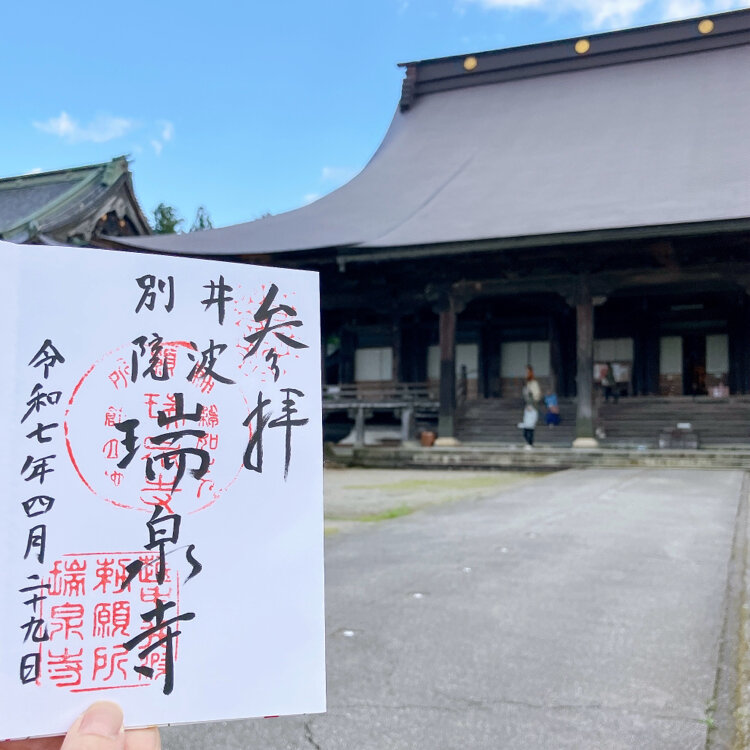 参拝
井波
別院
瑞泉寺
令和七年四月二十九日
勅願所
瑞泉寺